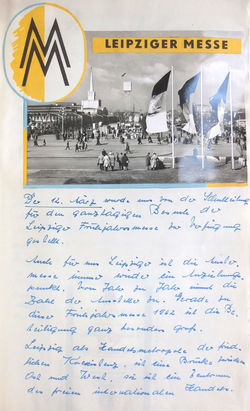 LEIPZIGER MESSE
Der 12. März wurde uns von der Schulleitung
für den ganztägigen Besuch der
Leipziger Frühjahrsmesse zur Verfügung
gestellt.
Auch für uns Leipziger ist die Muster-
messe immer wieder ein Anziehungs-
punkt. Von Jahr zu Jahr nimmt die
Zahl der Aussteller zu. Gerade zu
dieser Frühjahrsmesse 1962 ist die Be-
teiligung ganz besonders groß.
Leipzig als Handelsmetropole der fried-
lichen Koexistenz, ist eine Brücke zwischen
Ost und West, sie ist ein Zentrum
des freien internationalen Handels.